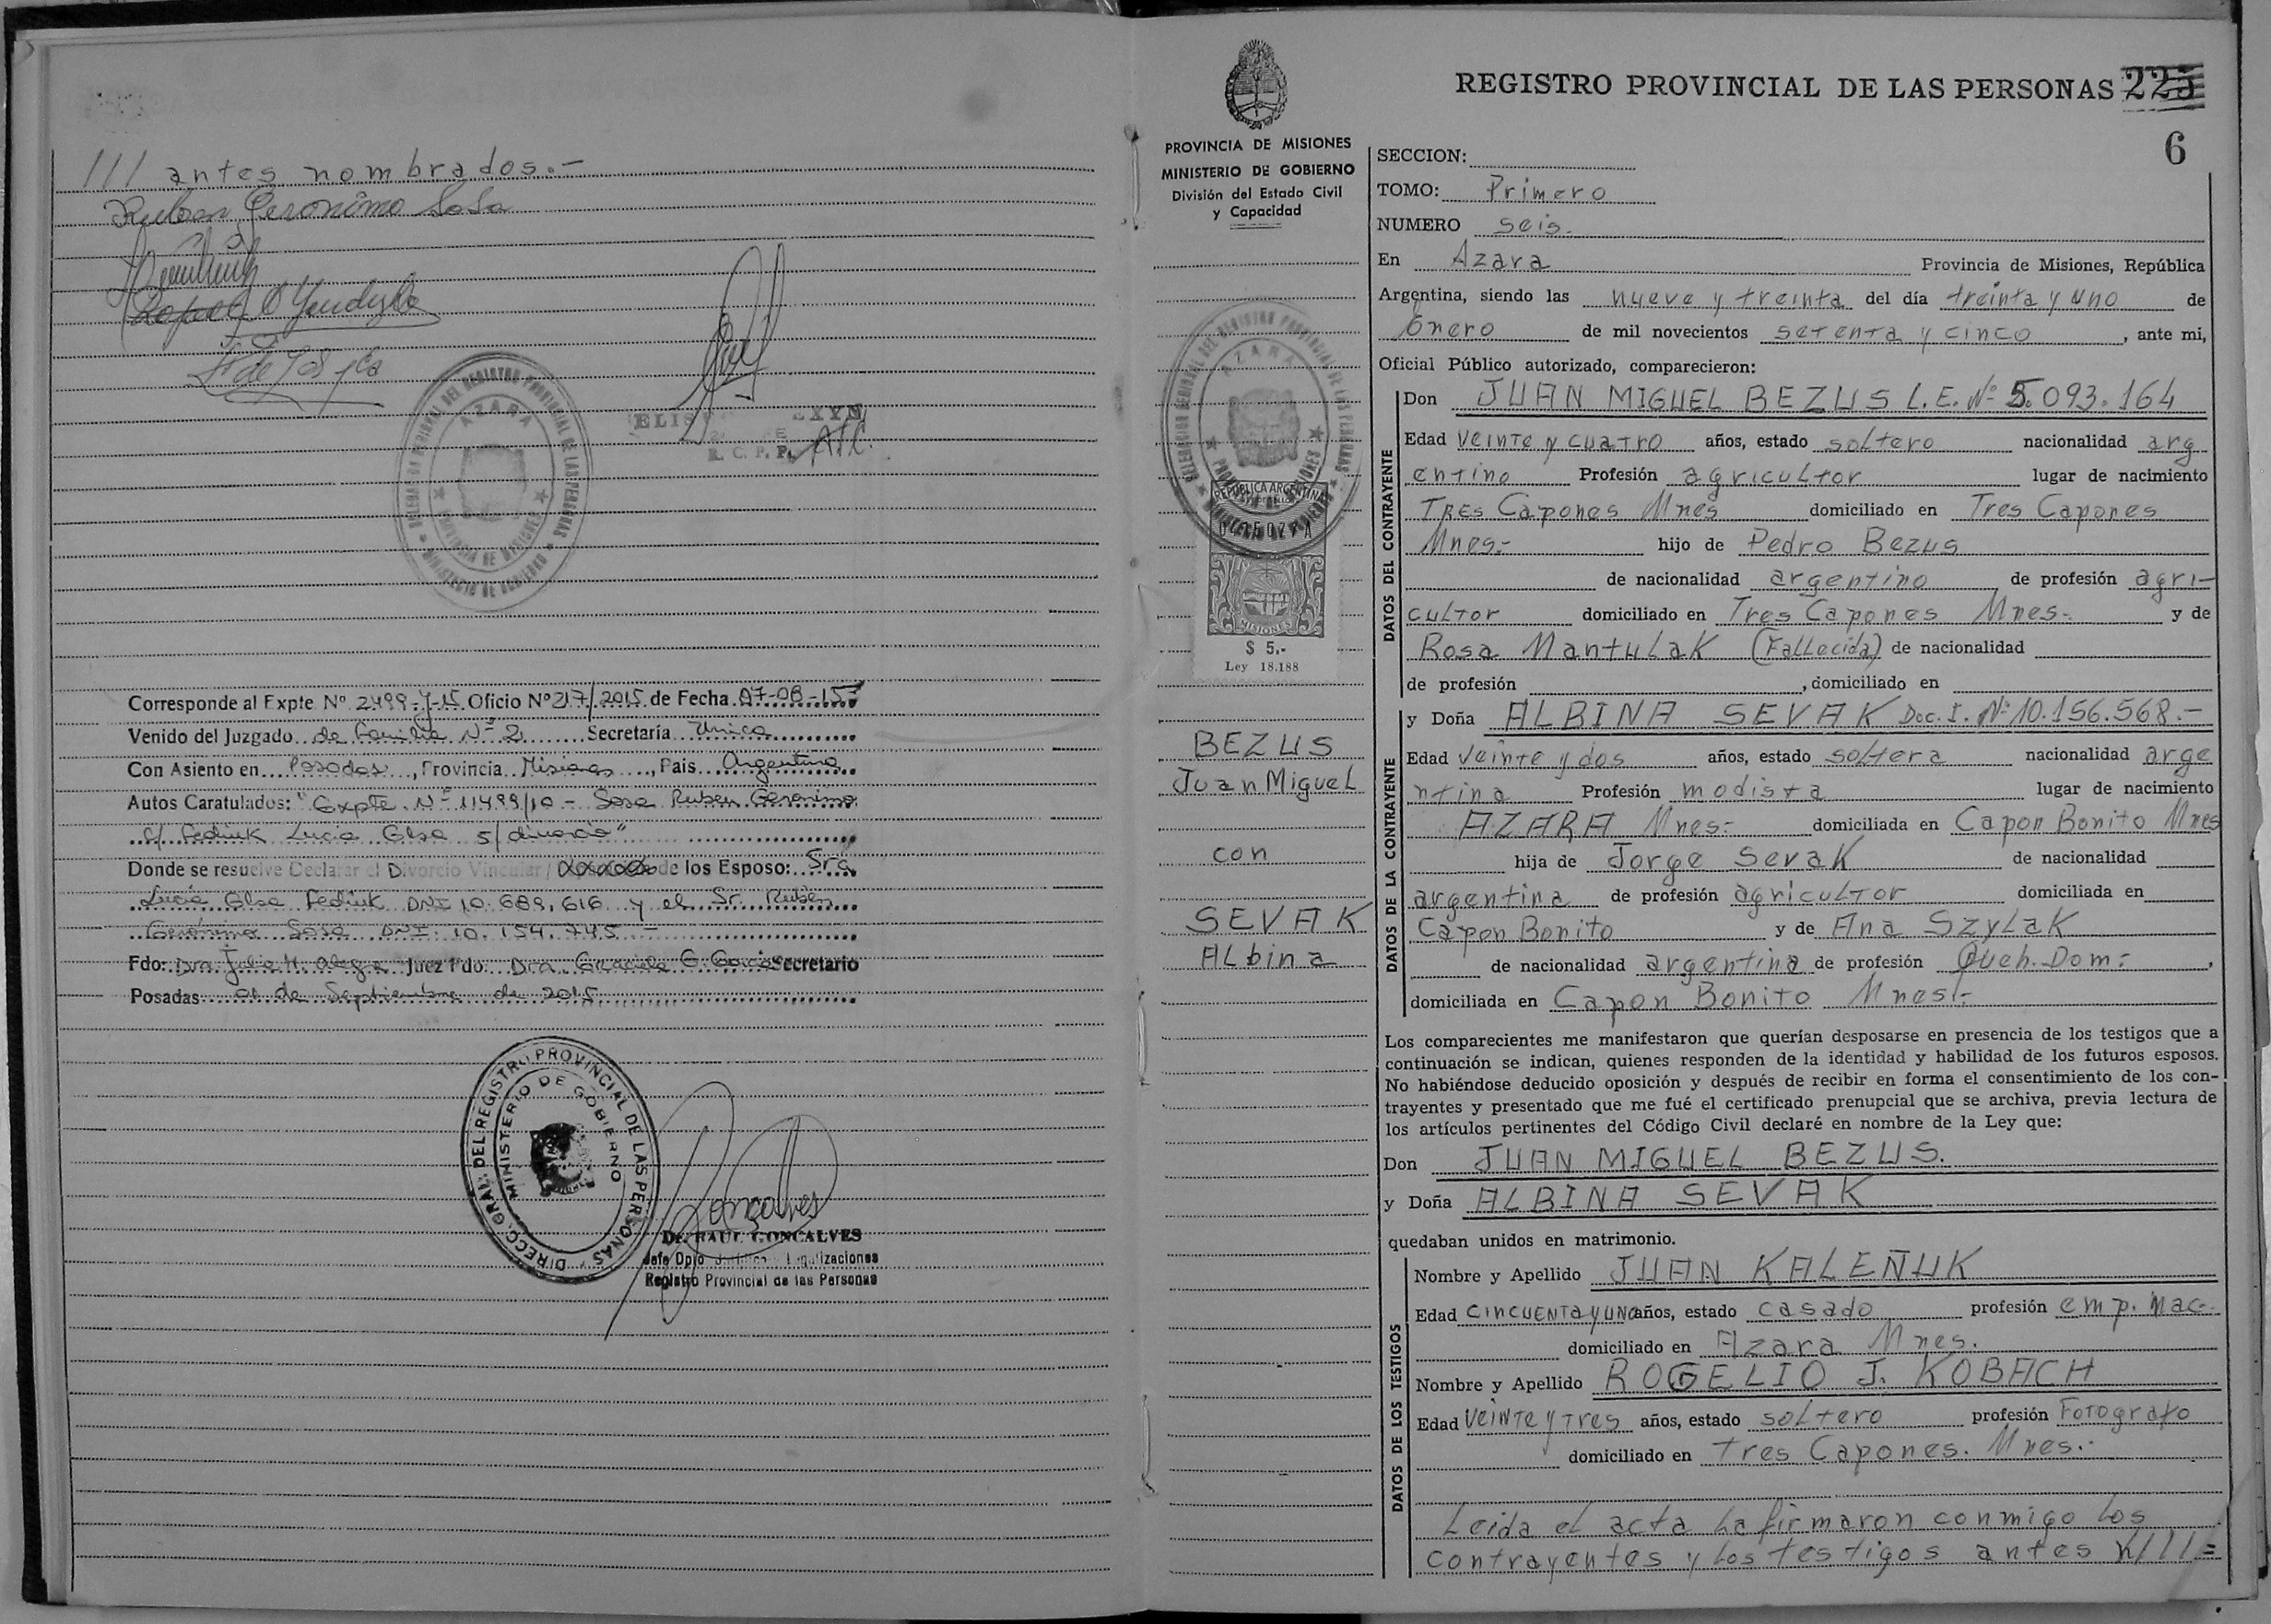 /// antes nombrados.-
Ruben Geronimo Sosa
Corresponde al Expte Nº 2499-y-15 Oficio Nº 217/2015 de Fecha 07-08-15-
Venido del Juzgado de Familia Nº 2 Secretaría Unica
Con Asiento en Posadas, Provincia Misiones, Pais Argentina
Autos Caratulados: "Expte. Nº 11499/10 - Sosa Ruben Geronimo
c/ Fediuk Lucia Elsa s/divorcio"
Donde se resuelve Declarar el Divorcio Vincular / de los Esposo: Sra
Lucia Elsa Fediuk DNI 10.689.616 y el Sr. Rubén
Gerónimo Sosa DNI. 10.154.745 -
Fdo: Dra. Julia H. Juez Fdo: Dra Graciela G. Secretario
Posadas 01 de Septiembre de 2015
DIRECC. GRAL. DEL REGISTRO PROVINCIAL DE LAS PERSONAS
MINISTERIO DE GOBIERNO
Dr. RAUL GONCALVES
Jefe Dpto Legalizaciones
Registro Provincial de las Personas
DELEGACION SECCIONAL DEL REGISTRO PROVINCIAL DE LAS PERSONAS
AZARA
PROVINCIA DE MISIONES
MINISTERIO DE GOBIERNO
R. C. P. P.
PROVINCIA DE MISIONES
MINISTERIO DE GOBIERNO
División del Estado Civil
y Capacidad
AZARA
REPUBLICA ARGENTINA
MISIONES
$ 5.-
Ley 18.188
BEZUS
Juan Miguel
con
SEVAK
Albina
REGISTRO PROVINCIAL DE LAS PERSONAS 225
6
SECCION:
TOMO: Primero
NUMERO seis.
En Azara Provincia de Misiones, República
Argentina, siendo las nueve y treinta del día treinta y uno de
Enero de mil novecientos setenta y cinco, ante mi,
Oficial Público autorizado, comparecieron:
DATOS DEL CONTRAYENTE
Don JUAN MIGUEL BEZUS L.E. Nº 5.093.164
Edad veinte y cuatro años, estado soltero nacionalidad arg
entino Profesión agricultor lugar de nacimiento
Tres Capones Mnes domiciliado en Tres Capones
Mnes.- hijo de Pedro Bezus
de nacionalidad argentino de profesión agri-
cultor domiciliado en Tres Capones Mnes.- y de
Rosa Mantulak (Fallecida) de nacionalidad
de profesión , domiciliado en
DATOS DE LA CONTRAYENTE
y Doña ALBINA SEVAK Doc. I. Nº 10.156.568.-
Edad veinte y dos años, estado soltera nacionalidad arge
ntina Profesión modista lugar de nacimiento
AZARA Mnes.- domiciliada en Capon Bonito Mnes
hija de Jorge Sevak de nacionalidad
argentina de profesión agricultor domiciliada en
Capon Bonito y de Ana Szylak
de nacionalidad argentina de profesión Queh. Dom.-,
domiciliada en Capon Bonito Mnes.-
Los comparecientes me manifestaron que querían desposarse en presencia de los testigos que a
continuación se indican, quienes responden de la identidad y habilidad de los futuros esposos.
No habiéndose deducido oposición y después de recibir en forma el consentimiento de los con-
trayentes y presentado que me fué el certificado prenupcial que se archiva, previa lectura de
los artículos pertinentes del Código Civil declaré en nombre de la Ley que:
Don JUAN MIGUEL BEZUS.
y Doña ALBINA SEVAK
quedaban unidos en matrimonio.
DATOS DE LOS TESTIGOS
Nombre y Apellido JUAN KALEÑUK
Edad cincuenta y uno años, estado casado profesión emp. Nac.-
domiciliado en Azara Mnes.
Nombre y Apellido ROGELIO J. KOBACH
Edad veinte y tres años, estado soltero profesión Fotografo
domiciliado en Tres Capones. Mnes.-
Leida el acta la firmaron conmigo los
contrayentes y los testigos antes n///=